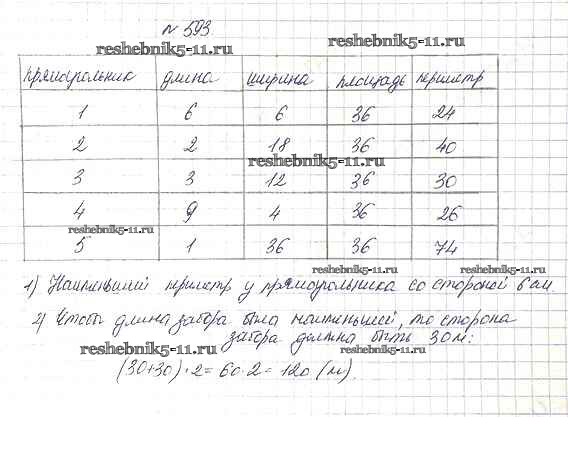 № 593.
reshebnik5-11.ru reshebnik5-11.ru
прямоугольник длина ширина площадь периметр
1 6 6 36 24
2 2 18 36 40
reshebnik5-11.ru
3 3 12 36 30
4 9 4 36 26
reshebnik5-11.ru
5 1 36 36 74
reshebnik5-11.ru reshebnik5-11.ru
1) Наименьший периметр у прямоугольника со стороной 6 см
2) Чтобы длина забора была наименьшей, то сторона
забора должна быть 30м:
reshebnik5-11.ru reshebnik5-11.ru
(30+30)·2=60·2=120 (м).